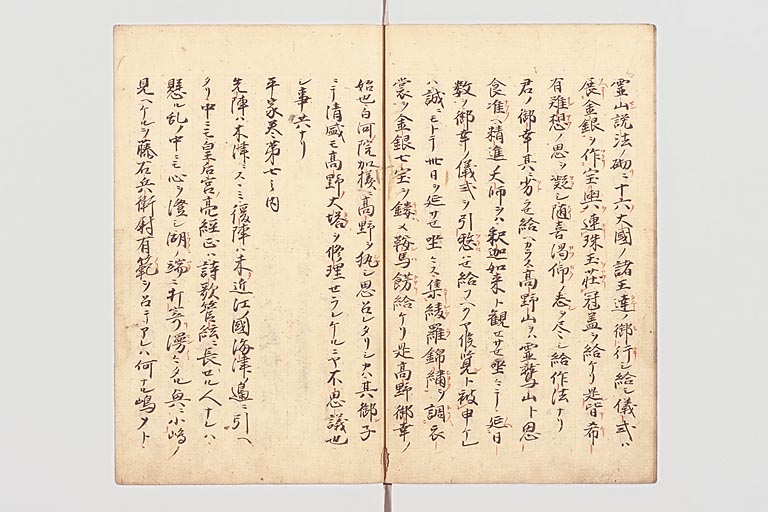 霊山説法ノ砌ニ十六大國ノ諸王達ノ御行シ給シ儀式ハ
展金銀ヲ作宝輿ハ連珠玉荘冠盖ヲ給ケリ是皆希
有難想ノ思ヲ凝シ随喜渇仰ノ志ヲ尽シ給作法ナリ
君ノ御幸其ニ劣セ給ヘカラス高野山ヲハ霊鷲山ト思
食准ヘ精進大師ヲハ釈迦如来ト観セサセ坐ニテ延日
数ノ御幸ノ儀式ヲ引愁セ給フヘクヤ候覧ト被申ケレ
ハ誠ニモトテ卅日ヲ延サセ坐ニス集綾羅錦繍ヲ調衣
裳ヲ金銀七宝ヲ鏤メ鞍馬餝給ケリ是高野御幸ノ
始也白河院加様ニ高野ヲ執シ思召レタリシカハ其御子
ニテ清盛モ高野ノ大塔ヲ修理セラレケルニヤ不思議也
シ事共ナリ
平家巻第七之内
先陣ハ木津ニスヽミ後陣ハ未近江ノ國海津ノ邊ニ引ヘ
タリ中ニモ皇后宮亮經正ハ詩歌管絃ニ長セル人ナレハ
懸ル乱ノ中ニモ心ヲ澄シ湖ノ端ニ打寄漫々タル奥ニ小嶋ノ
見ヘケルヲ藤右兵衛尉有範ヲ召テアレハ何ナル嶋ソト